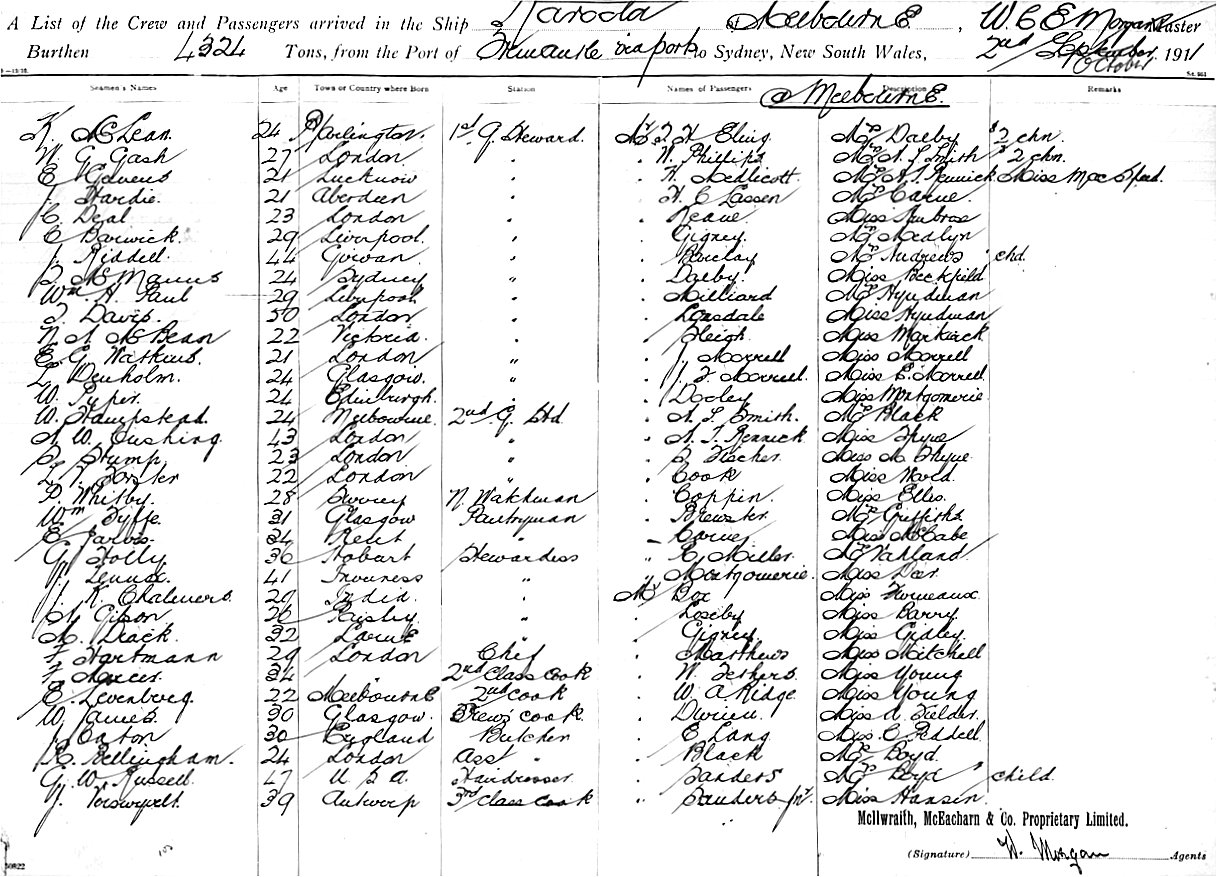 A List of the Crew and Passengers arrived in the Ship Karoola of Melbourne, W. C. E. Morgan Master
Burthen 4524 Tons, from the Port of Fremantle via ports to Sydney, New South Wales, 2nd September October 1911
Seamen's Names Age Town or Country where Born Station Names of Passengers Description Remarks
Melbourne.
K. McLean. 24 1st G. Steward. Mr Mrs Dalby & 2 chn.
W. G. Gash 27 London " " W. Phillips Mrs A. L. Smith & 2 chn.
E. 21 Lucknow " " Medlicott. Mrs A. J. Rennick Miss Mac
J. Hardie. 21 Aberdeen " " H. E. Lassen Mrs Carne.
C. Deal 23 London " " Keane. Miss Ambrose
C. Barwick. 29 Liverpool. " " Gigney. Mrs Medlyn
J. Riddell. 44 Govan " " Barclay Mrs Andrews " chd.
McManus 24 Sydney " " Dalby. Miss
Wm. H. Paul 29 Liverpool " " Milliard Mrs Hyndman
Davis. 30 London " " Lonsdale Miss Hyndman
McBean 22 Victoria. " " Sleigh. Miss
E. G. Watkins. 21 London " " J. Morrell Miss Morrell
Denholm. 24 Glasgow. " " J. F. Morrell. Miss E. Morrell
W. Pyper. 24 Edinburgh. " " Dooley Miss Montgomerie
W. Hampstead. 24 Melbourne. 2nd G. Std. " A. L. Smith. Mrs Black
A. W. Cushing. 43 London " " A. J. Rennick Miss Thyne
Stump. 23 London " " Fischer. Miss M. Thyne
Forster 22 London " " Cook Miss Ward.
D. Whitby. 28 Surrey N. Watchman " Coppin. Miss Ellis.
Wm Fyffe. 31 Glasgow Pantryman " Brewster. Mrs Griffiths
E. Jarvis. 34 Kent " " Carne Miss McCabe
G. Holly 36 Hobart Stewardess " E. Miller. Mrs
J. Lennox. 41 Inverness " " Montgomerie. Miss
J. K. Chalmers. 29 India. " Mr Box Miss Furneaux.
Gibson. 36 Paisley. " " Loseby Miss Barry.
M. Drack. 32 " " Gigney. Miss Gidley.
F. Hartmann 29 London Chef " Matthews Miss Mitchell
34 " 2nd Class cook " W. Miss Young
E. Levenberg. 22 Melbourne 2nd cook " W. A Ridge Miss Young
W. James. 30 Glasgow. Crew's cook. " Miss A. Fielder.
J. Eaton 30 England Butcher " E Lang Miss C. Peddell.
Bellingham. 24 London Asst " " Black Mrs Boyd.
G. W. Russell. 47 U S A. Hairdresser " Sanders Mrs Boyd " child.
J. 39 Antwerp 3rd Class cook " Sanders jr. Miss Hansen.
McIlwraith, McEacharn & Co. Proprietary Limited.
(Signature) W. Morgan Agents
50822